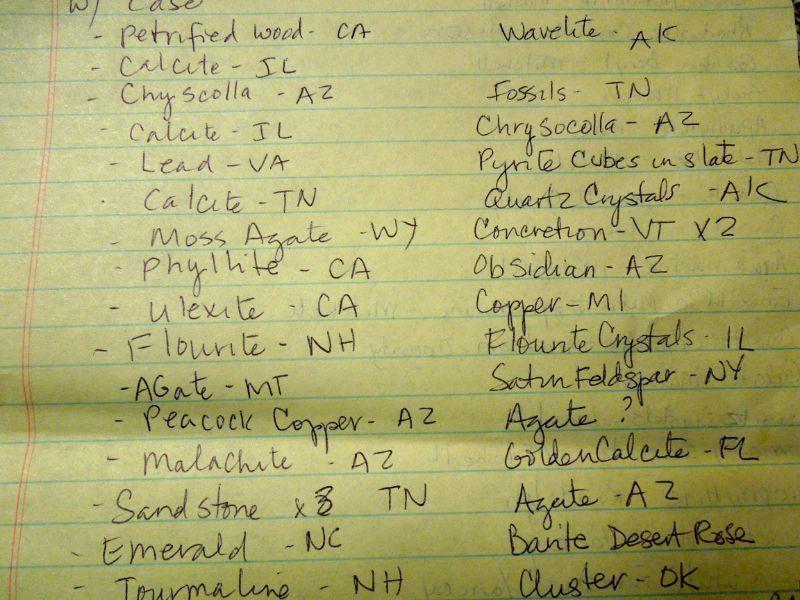 W/ Case
- Petrified Wood - CA
- Calcite - IL
- Chyscolla - AZ
- Calcite - IL
- Lead - VA
- Calcite - TN
- Moss Agate - WY
- Phyllite - CA
- Ulexite - CA
- Flourite - NH
- AGate - MT
- Peacock Copper - AZ
- Malachite - AZ
- Sandstone x3 TN
- Emerald - NC
- Tourmaline - NH
Wavelite - AK
Fossils - TN
Chrysocolla - AZ
Pyrite Cubes in slate - TN
Quartz Crystals - AK
Concretion - VT x2
Obsidian - AZ
Copper - MI
Flourite Crystals - IL
Satin Feldspar - NY
Agate ?
Golden Calcite - FL
Agate - AZ
Barite Desert Rose
Cluster - OK